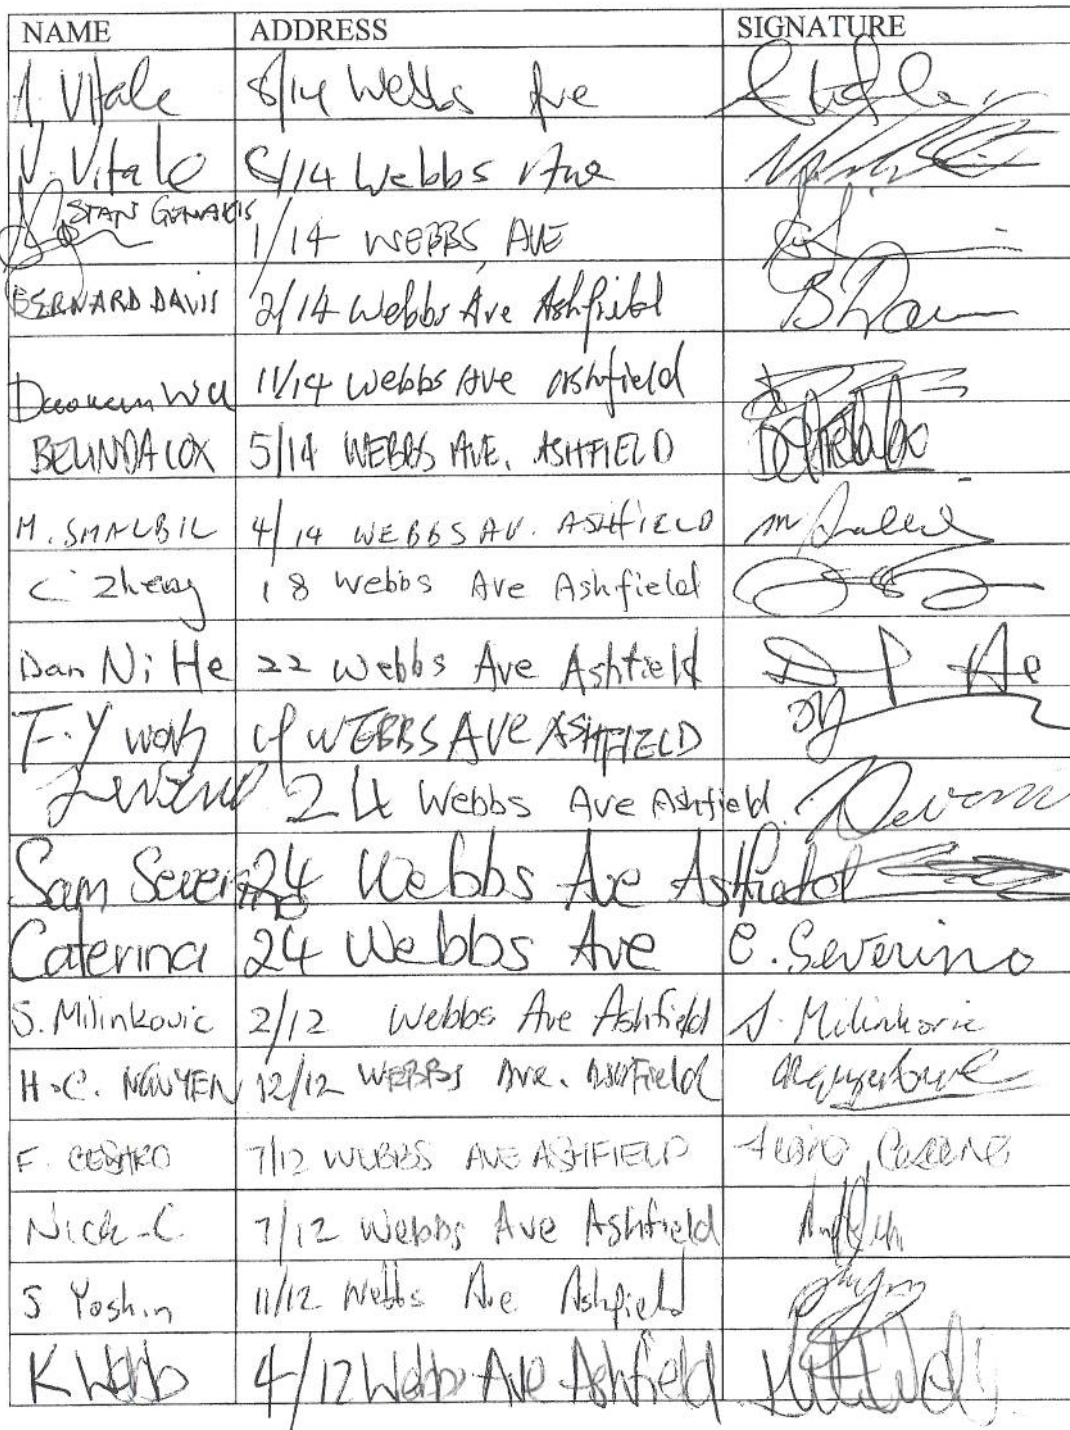 NAME ADDRESS SIGNATURE
A. Vitale 8/14 Webbs Ave
V. Vitale 8/14 Webbs Ave
STAN GENAKIS 1/14 WEBBS AVE
BERNARD DAVIS 2/14 Webbs Ave Ashfield B Davis
Wu 11/14 Webbs Ave Ashfield
BELINDA COX 5/14 WEBBS AVE. ASHFIELD
M. SMALBIL 4/14 WEBBS AV. ASHFIELD M Smalbil
C Zheng 18 Webbs Ave Ashfield
Dan Ni He 22 Webbs Ave Ashfield D He
F.Y Wong WEBBS AVE ASHFIELD
24 Webbs Ave Ashfield
Sam Severino 24 Webbs Ave Ashfield
Caterina 24 Webbs Ave C. Severino
S. Milinkovic 2/12 Webbs Ave Ashfield S. Milinkovic
H.C. NGUYEN 12/12 WEBBS Ave. Ashfield
F. CESARO 7/12 WEBBS AVE ASHFIELD
Nick C 7/12 Webbs Ave Ashfield
S Yoshin 11/12 Webbs Ave Ashfield
K Webb 4/12 Webbs Ave Ashfield